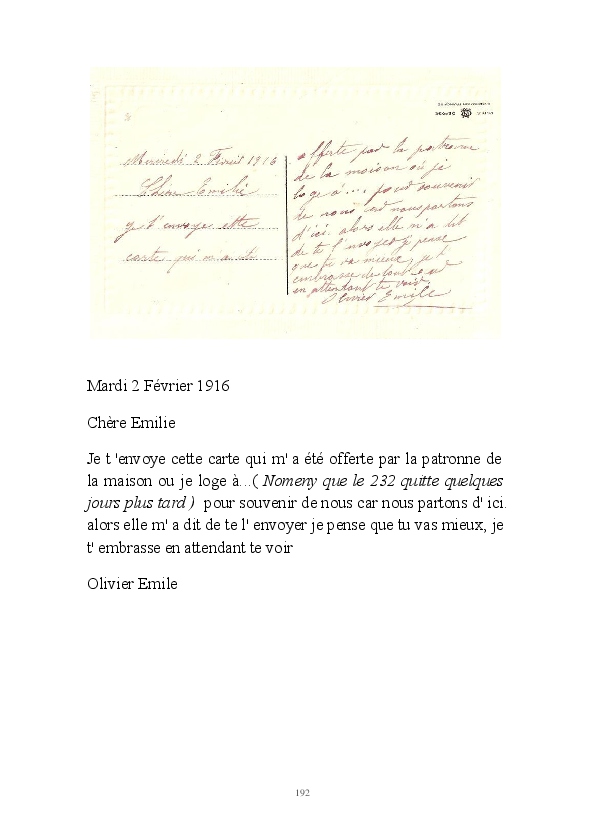 Mercredi 2 Fevrier 1916
Chère Emilie
je t'envoye cette
carte qui m'a été
offerte par la patronne
de la maison où je
loge à... pour souvenir
de nous car nous partons
d'ici. alors elle m'a dit
de te l'envoyer je pense
que tu va mieux, je t'
embrasse
en attendant te voir
Olivier Emile
Mardi 2 Février 1916
Chère Emilie
Je t 'envoye cette carte qui m' a été offerte par la patronne de
la maison ou je loge à...( Nomeny que le 232 quitte quelques
jours plus tard ) pour souvenir de nous car nous partons d' ici.
alors elle m' a dit de te l' envoyer je pense que tu vas mieux, je
t' embrasse en attendant te voir
Olivier Emile
192